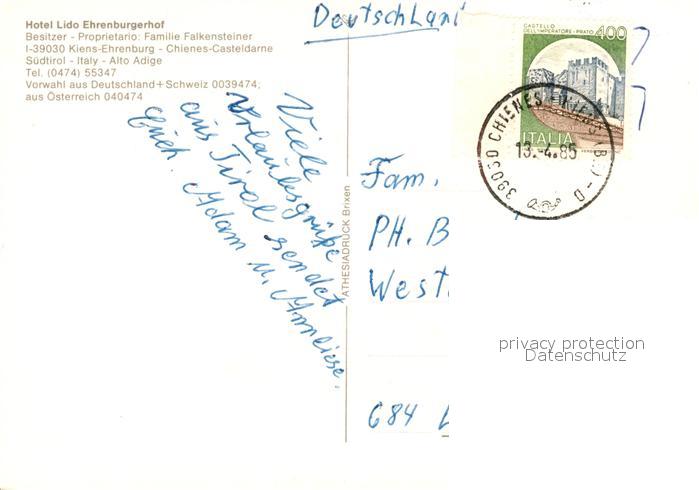 Hotel Lido Ehrenburgerhof
Besitzer - Proprietario: Familie Falkensteiner
I-39030 Kiens-Ehrenburg - Chienes-Casteldarne
Südtirol - Italy - Alto Adige
Tel. (0474) 55347
Vorwahl aus Deutschland+Schweiz 0039474;
aus Österreich 040474
Viele
Urlaubsgrüße
aus Tirol sendet
Euch Adam u. Anneliese.
ATHESIADRUCK Brixen
Deutschland
CASTELLO
DELL'IMPERATORE - PRATO
400
ITALIA
39030 CHIENES
13.-4.85
Fam.
PH. B
West
684
privacy protection
Datenschutz